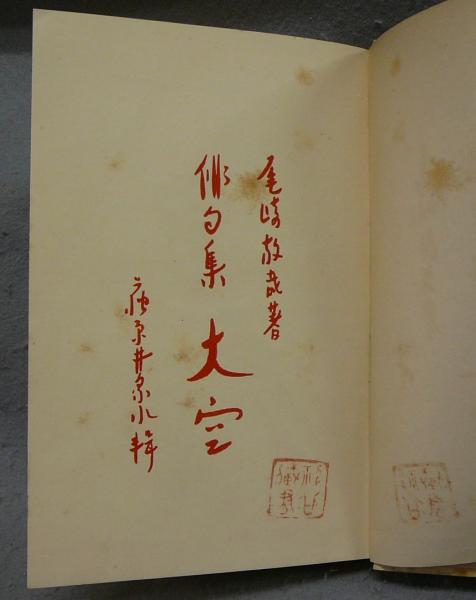 尾崎放哉著
俳句集 大空
荻原井泉水輯